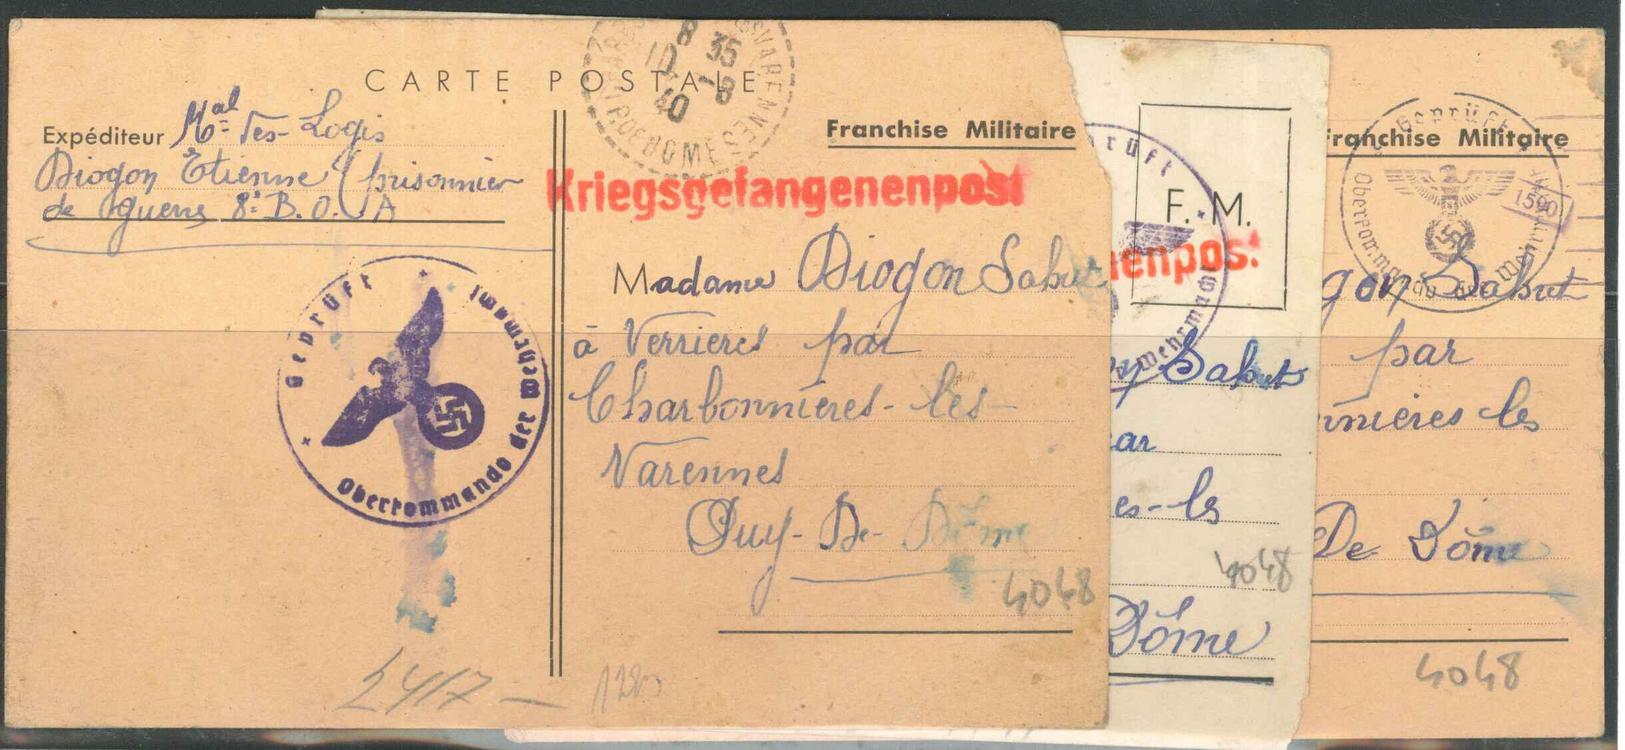 CARTE POSTALE
8 35
10 -8
40
VARENNES
P. DE DOME
Expéditeur Mal des-Logis
Diogon Etienne (prisonnier
de guerre 8e B.O.A
Franchise Militaire
Kriegsgefangenenpost
Geprüft
Oberkommando der Wehrmacht
Madame Diogon Sabut
à Verrieres par
Charbonnières-les-
Varennes
Puy-De-Dôme
4048
2417-
128
prüft
F. M.
nenpost
Wehrmacht
Sabut
ar
es-les
4048
Dôme
Franchise Militaire
Geprüft
Oberkommando der Wehrmacht
1590
gon Sabut
par
nnières les
De Dôme
4048